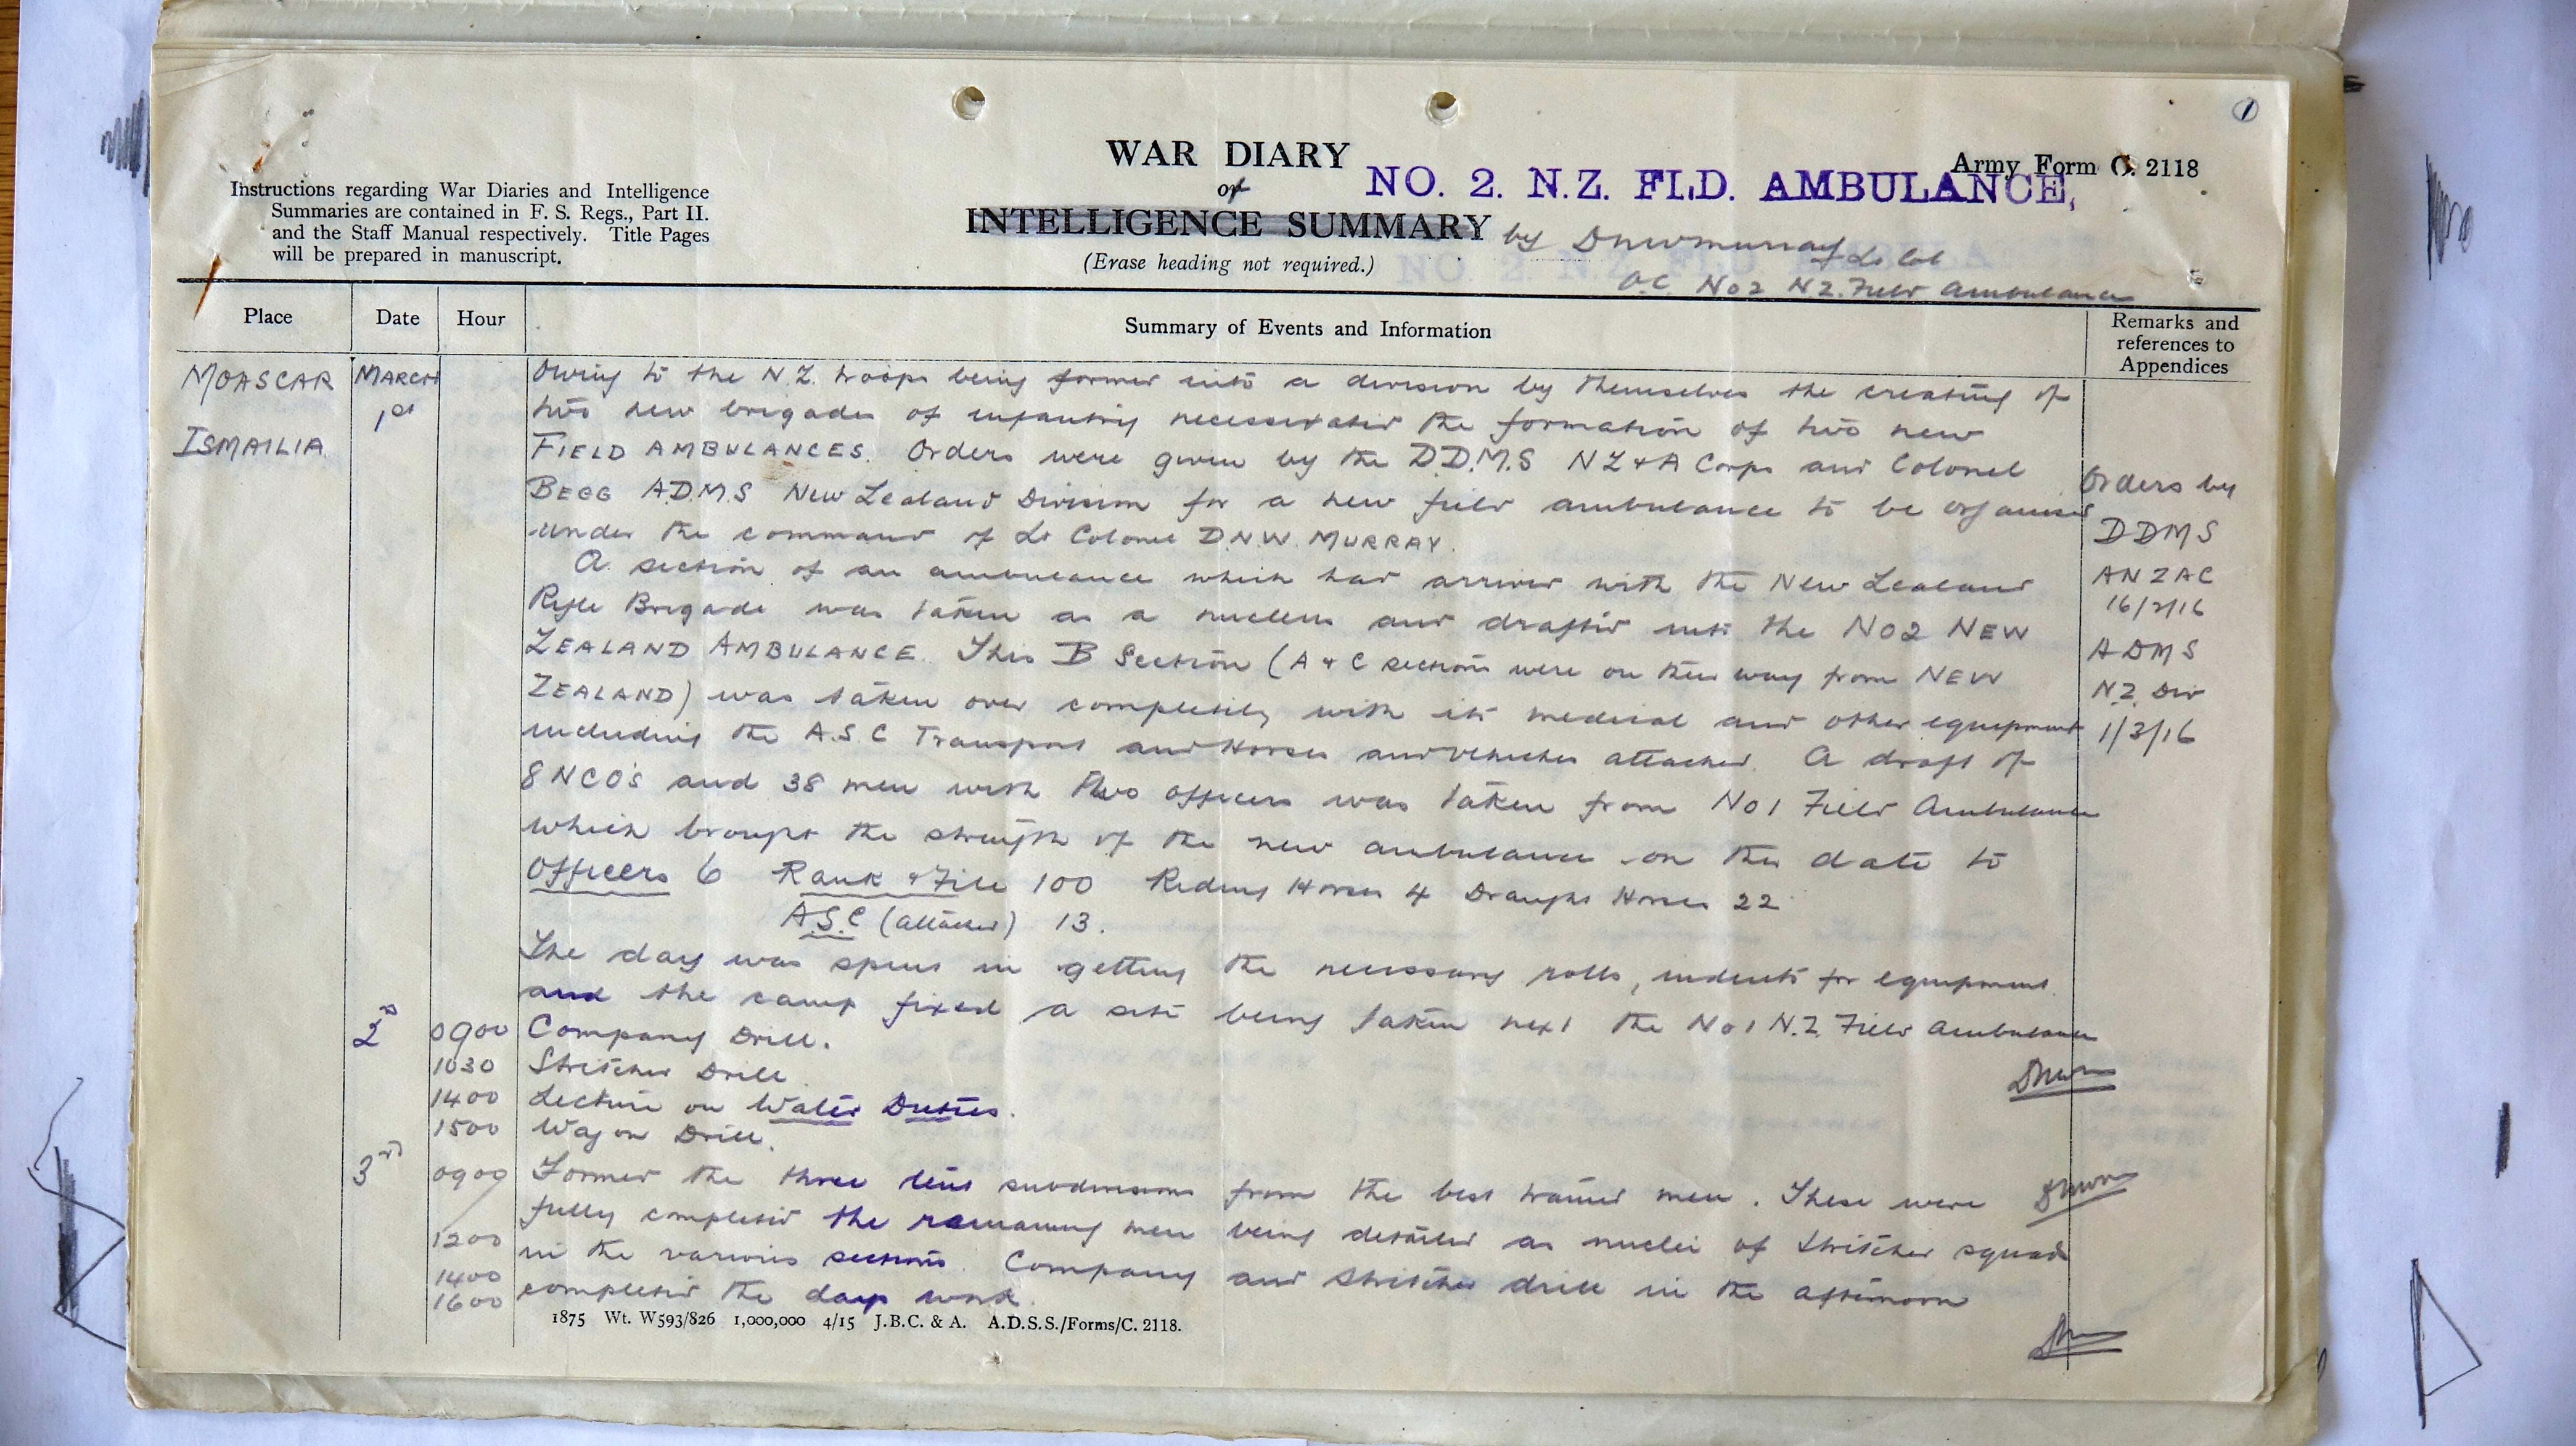 1
WAR DIARY
or
INTELLIGENCE SUMMARY
(Erase heading not required.)
NO. 2. N.Z. FLD. AMBULANCE,
Army Form C. 2118
by DNW Murray Lt Col
O.C. No 2 N.Z. Field Ambulance
Instructions regarding War Diaries and Intelligence
Summaries are contained in F. S. Regs., Part II.
and the Staff Manual respectively. Title Pages
will be prepared in manuscript.
Place
Date
Hour
Summary of Events and Information
Remarks and
references to
Appendices
MOASCAR
ISMAILIA
MARCH
1st
Owing to the N.Z. troops being formed into a division by themselves the creating of
two new brigades of infantry necessitated the formation of two new
FIELD AMBULANCES. Orders were given by the D.D.M.S NZ & A Corps and Colonel
BEGG A.D.M.S New Zealand Division for a new field ambulance to be organised
under the command of Lt Colonel D.N.W. MURRAY.
A section of an ambulance which had arrived with the New Zealand
Rifle Brigade was taken as a nucleus and drafted into the No 2 NEW
ZEALAND AMBULANCE. This B Section (A & C sections were on their way from NEW
ZEALAND) was taken over completely with its medical and other equipment
including the A.S.C Transport and Horses and vehicles attached. A draft of
8 NCO's and 38 men with two officers was taken from No 1 Field Ambulance
which brought the strength of the new ambulance on this date to
Officers 6 Rank & File 100 Riding Horses 4 Draught Horses 22
A.S.C (attached) 13.
The day was spent in getting the necessary rolls, indents for equipment
and the camp fixed a site being taken next the No 1 N.Z. Field Ambulance
Orders by
DDMS
ANZAC
16/2/16
ADMS
N.Z. Div
1/3/16
DNWM
2nd
0900 Company Drill.
1030 Stretcher Drill
1400 Lecture on Water Duties.
1500 Wagon Drill.
DNWM
3rd
0900 Formed the three tent subdivisions from the best trained men. These were
fully completed the remaining men being detailed as nuclei of stretcher squad
1200 in the various sections. Company and stretcher drill in the afternoon
1400
1600 completed the days work.
1875 Wt. W593/826 1,000,000 4/15 J.B.C. & A. A.D.S.S./Forms/C. 2118.